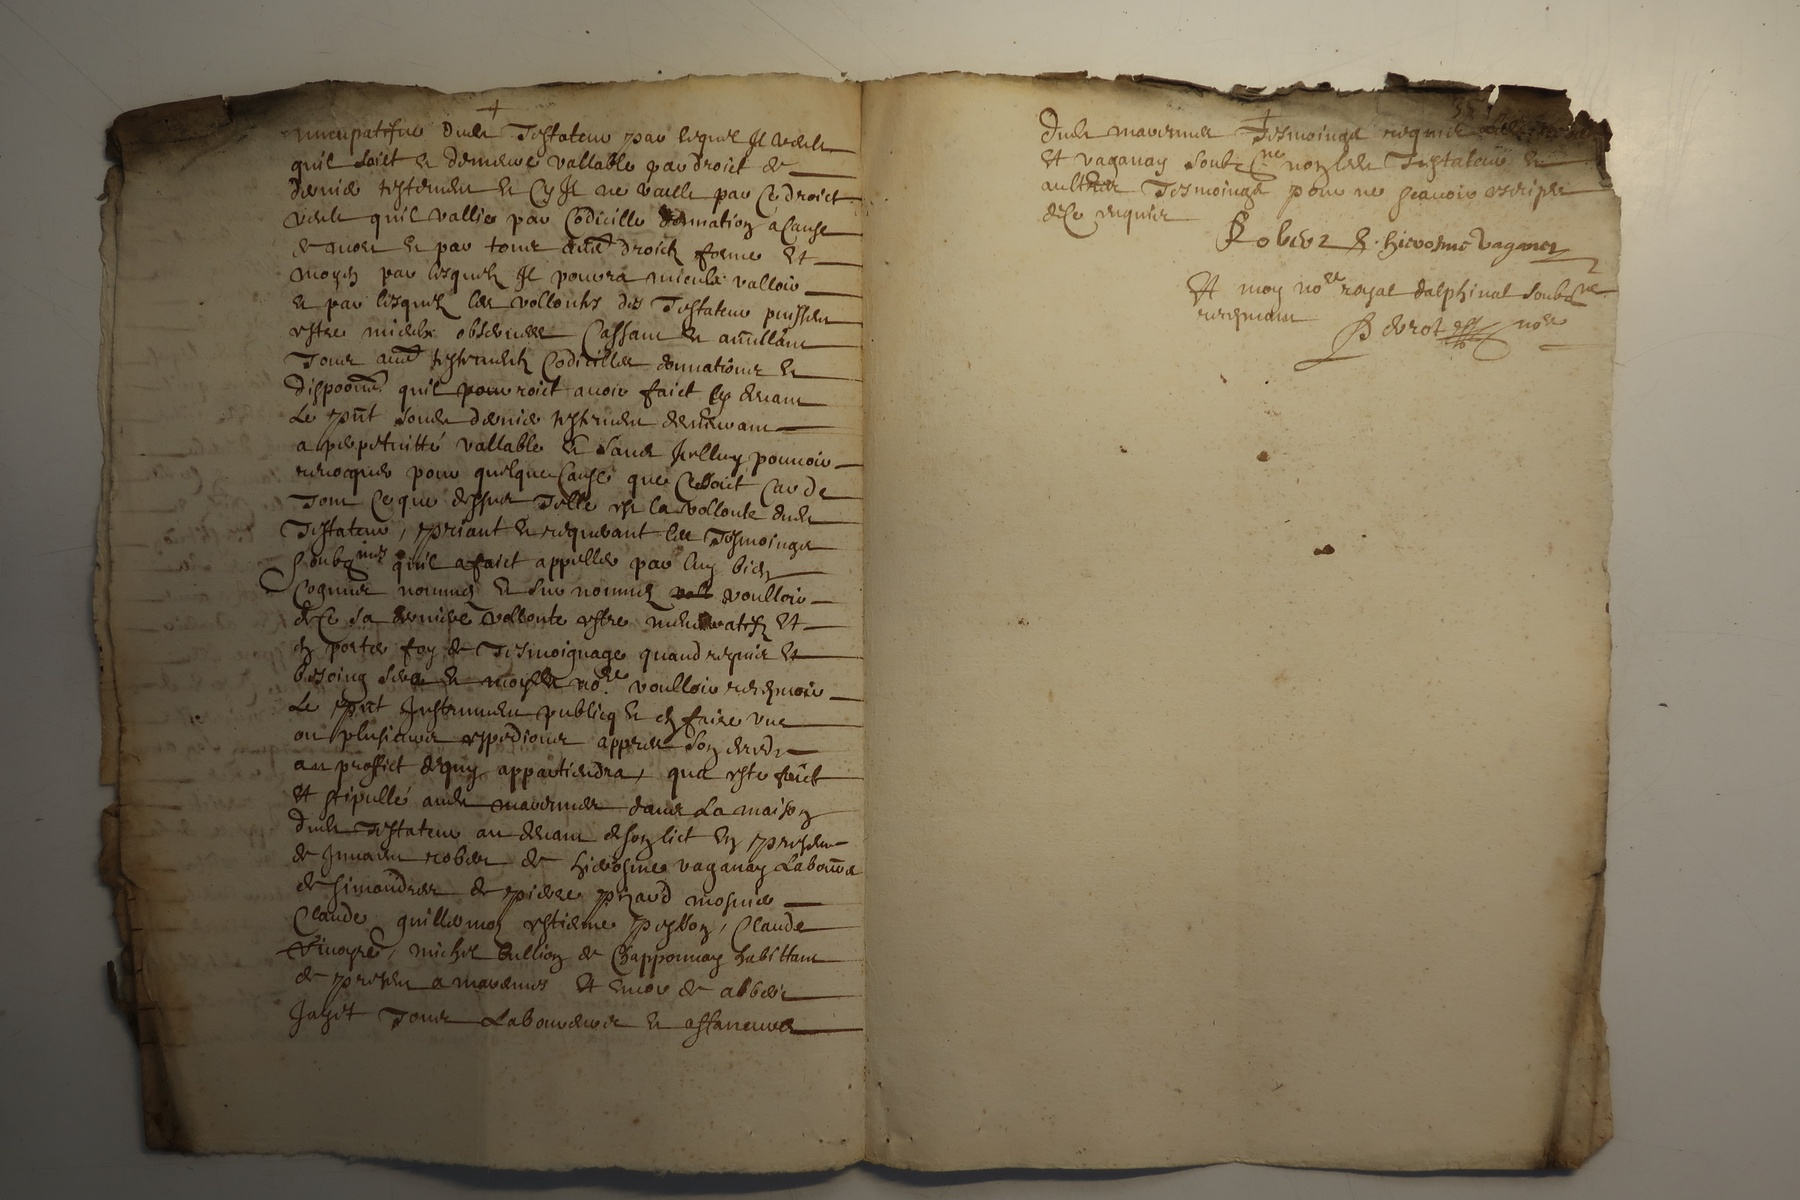 nuncupatifve dud Testateur par lequel Il veult
quil soict et demeure vallable par droict de
dernier testement et Cy Il ne vaille par Ce droict
veult quil vallie par Codicille donnation a Cause
de mort et par tous aultres droictz forme Et
moyen par lesquelz Il pourra mieulx valloir
et par lesquelz les vollontés des Testateur puissent
estre mieulx observees Cassant et anullant
Tous aultres testementz Codicilles donnations et
dispoons quil pourroict avoir faict Cy devant
Le pnt son dernier testement demeurant
a perpetuitté vallable et sans Icelluy pouvoir
revocquer pour quelque Cause que Ce soict Car de
Tout Ce que dessus Telle est la vollonté dud
Testateur, priant et requerant les Tesmoings
Soubznes quil a faict appeller par luy bien
Cogneus nommes et surnommes voulloir
de Ce sa derniere vollonte estre Et
en porter foy de Tesmoignage quand requis Et
besoing sera et moyd no.re voulloir recepvoir
Le pnt Instrument publicq et en faire une
ou plusieurs expedions appres son deceds
au proffict de quy appartiendra, que este faict
Et stipullé aud marennes dans La maison
dud Testateur au devant de son lict En presence
de rober de hierosme vaganay Laboure
de simandres de pierre pizard mosnier
Claude guillermoz estienne Claude
michel bullioz de Chapponnay habittant
de present a marennes Et encor de
Tous Laboureurs et
Dud marennes Tesmoings requis
Et vaganay soubzne non led Testateur et
aultres Tesmoings pour ne scavoir escripre
de Ce requis
Rober hierosme vaganey
Et moy nore royal dalphinal soubzne
recepvant